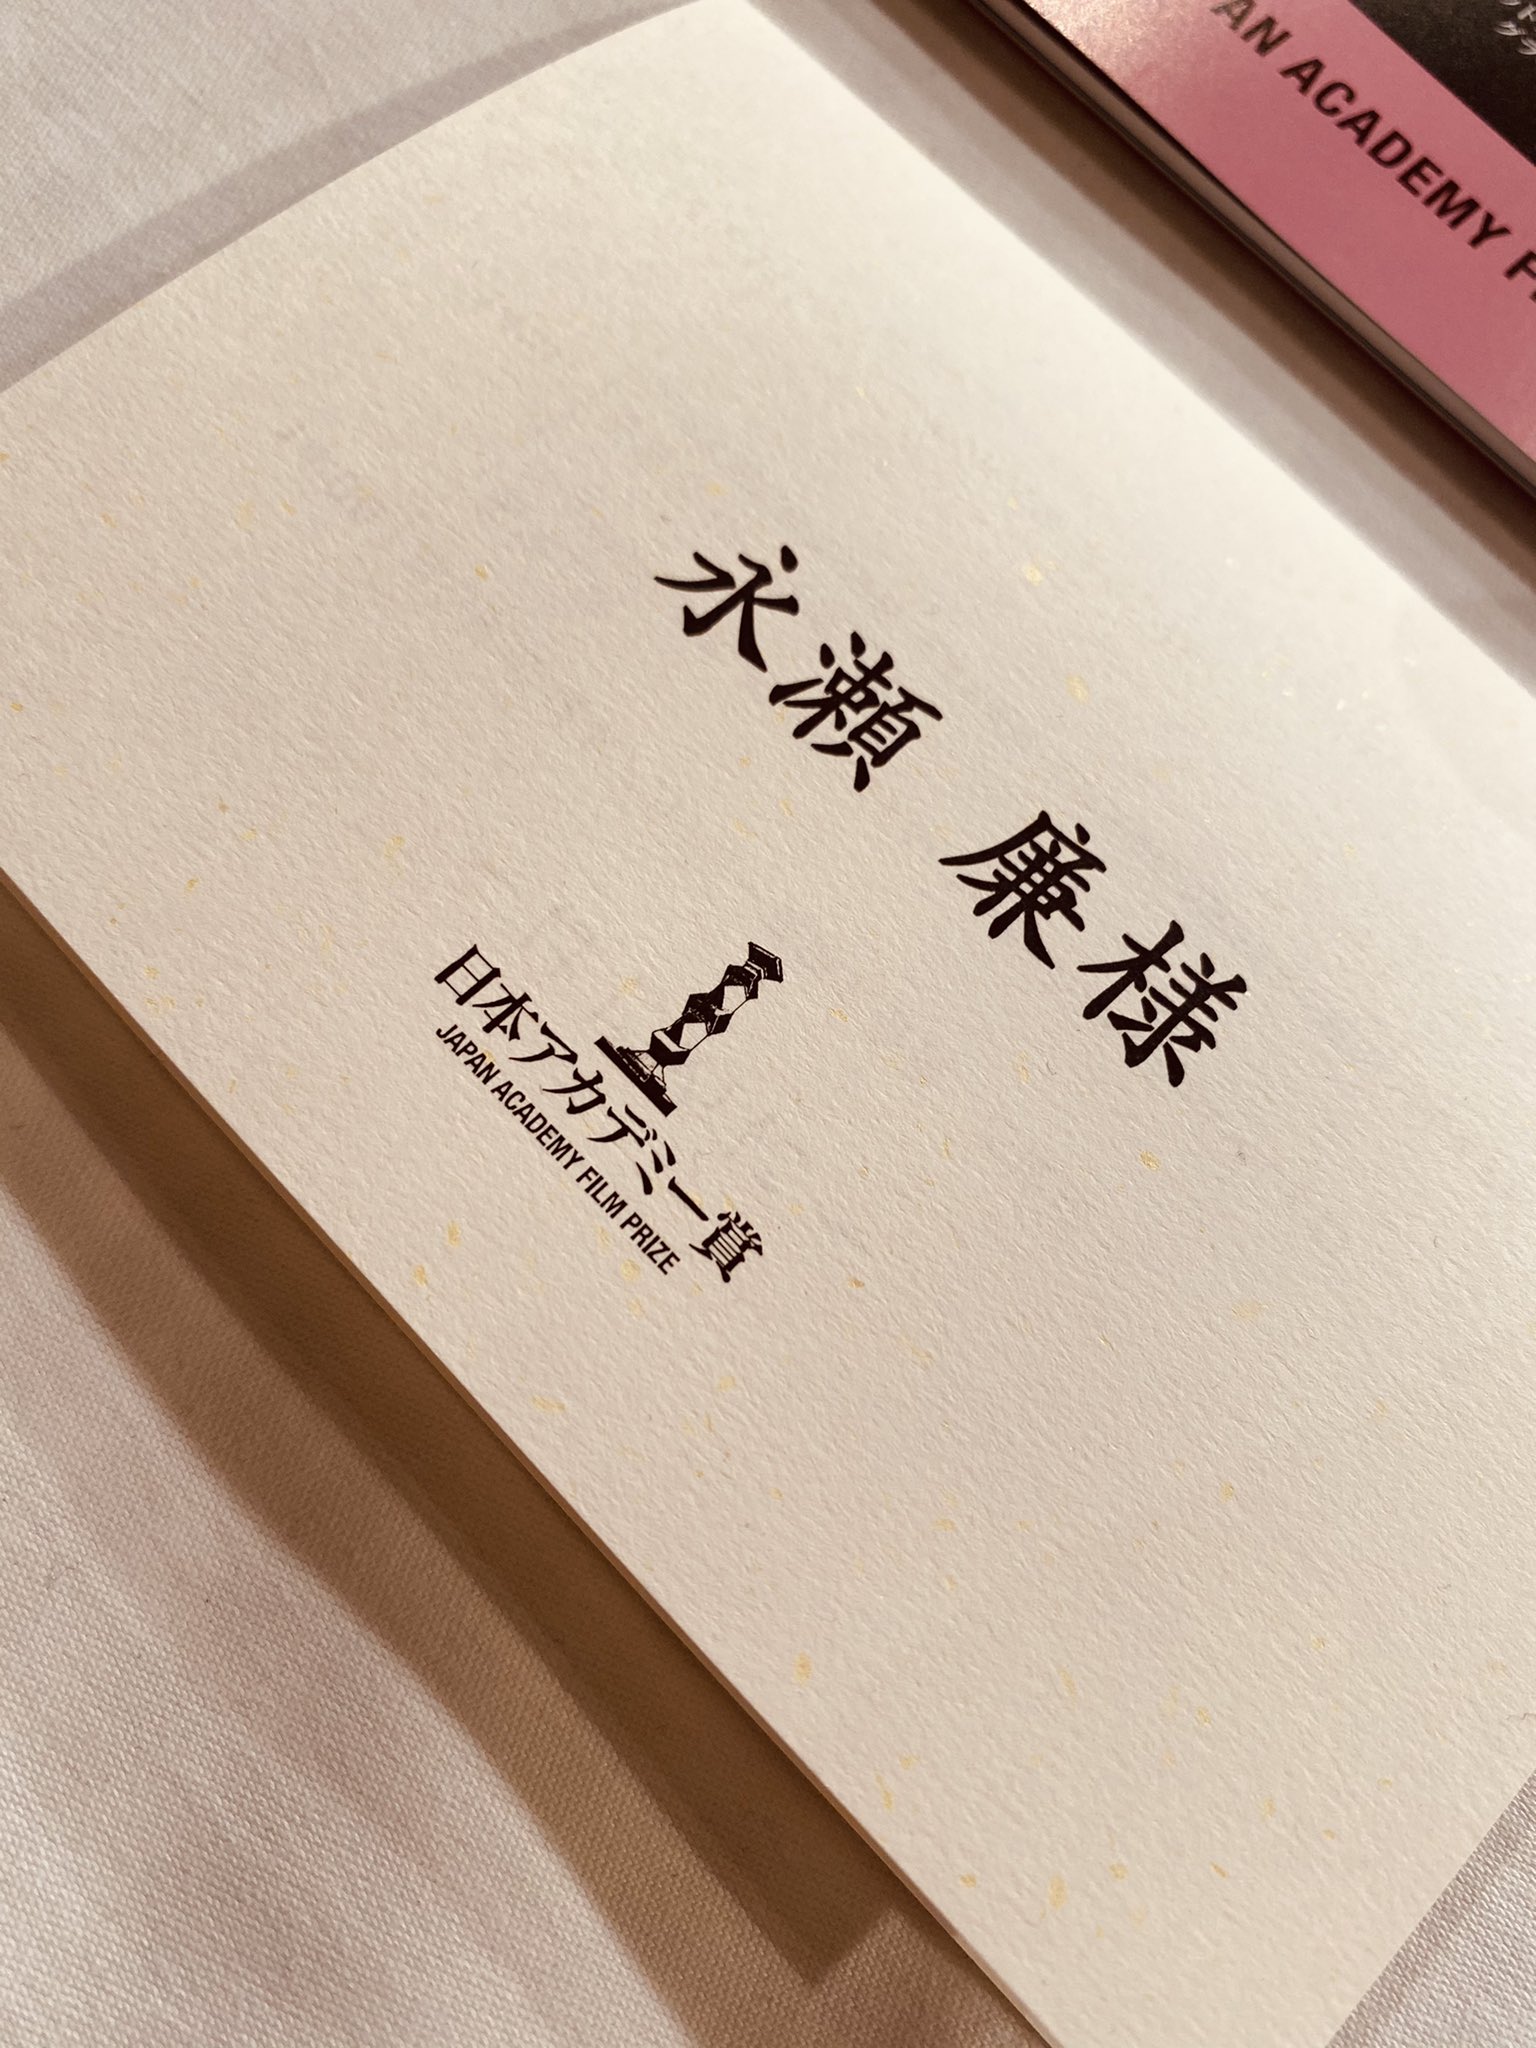 永瀬 廉様
日本アカデミー賞
JAPAN ACADEMY FILM PRIZE
AN ACADEMY F